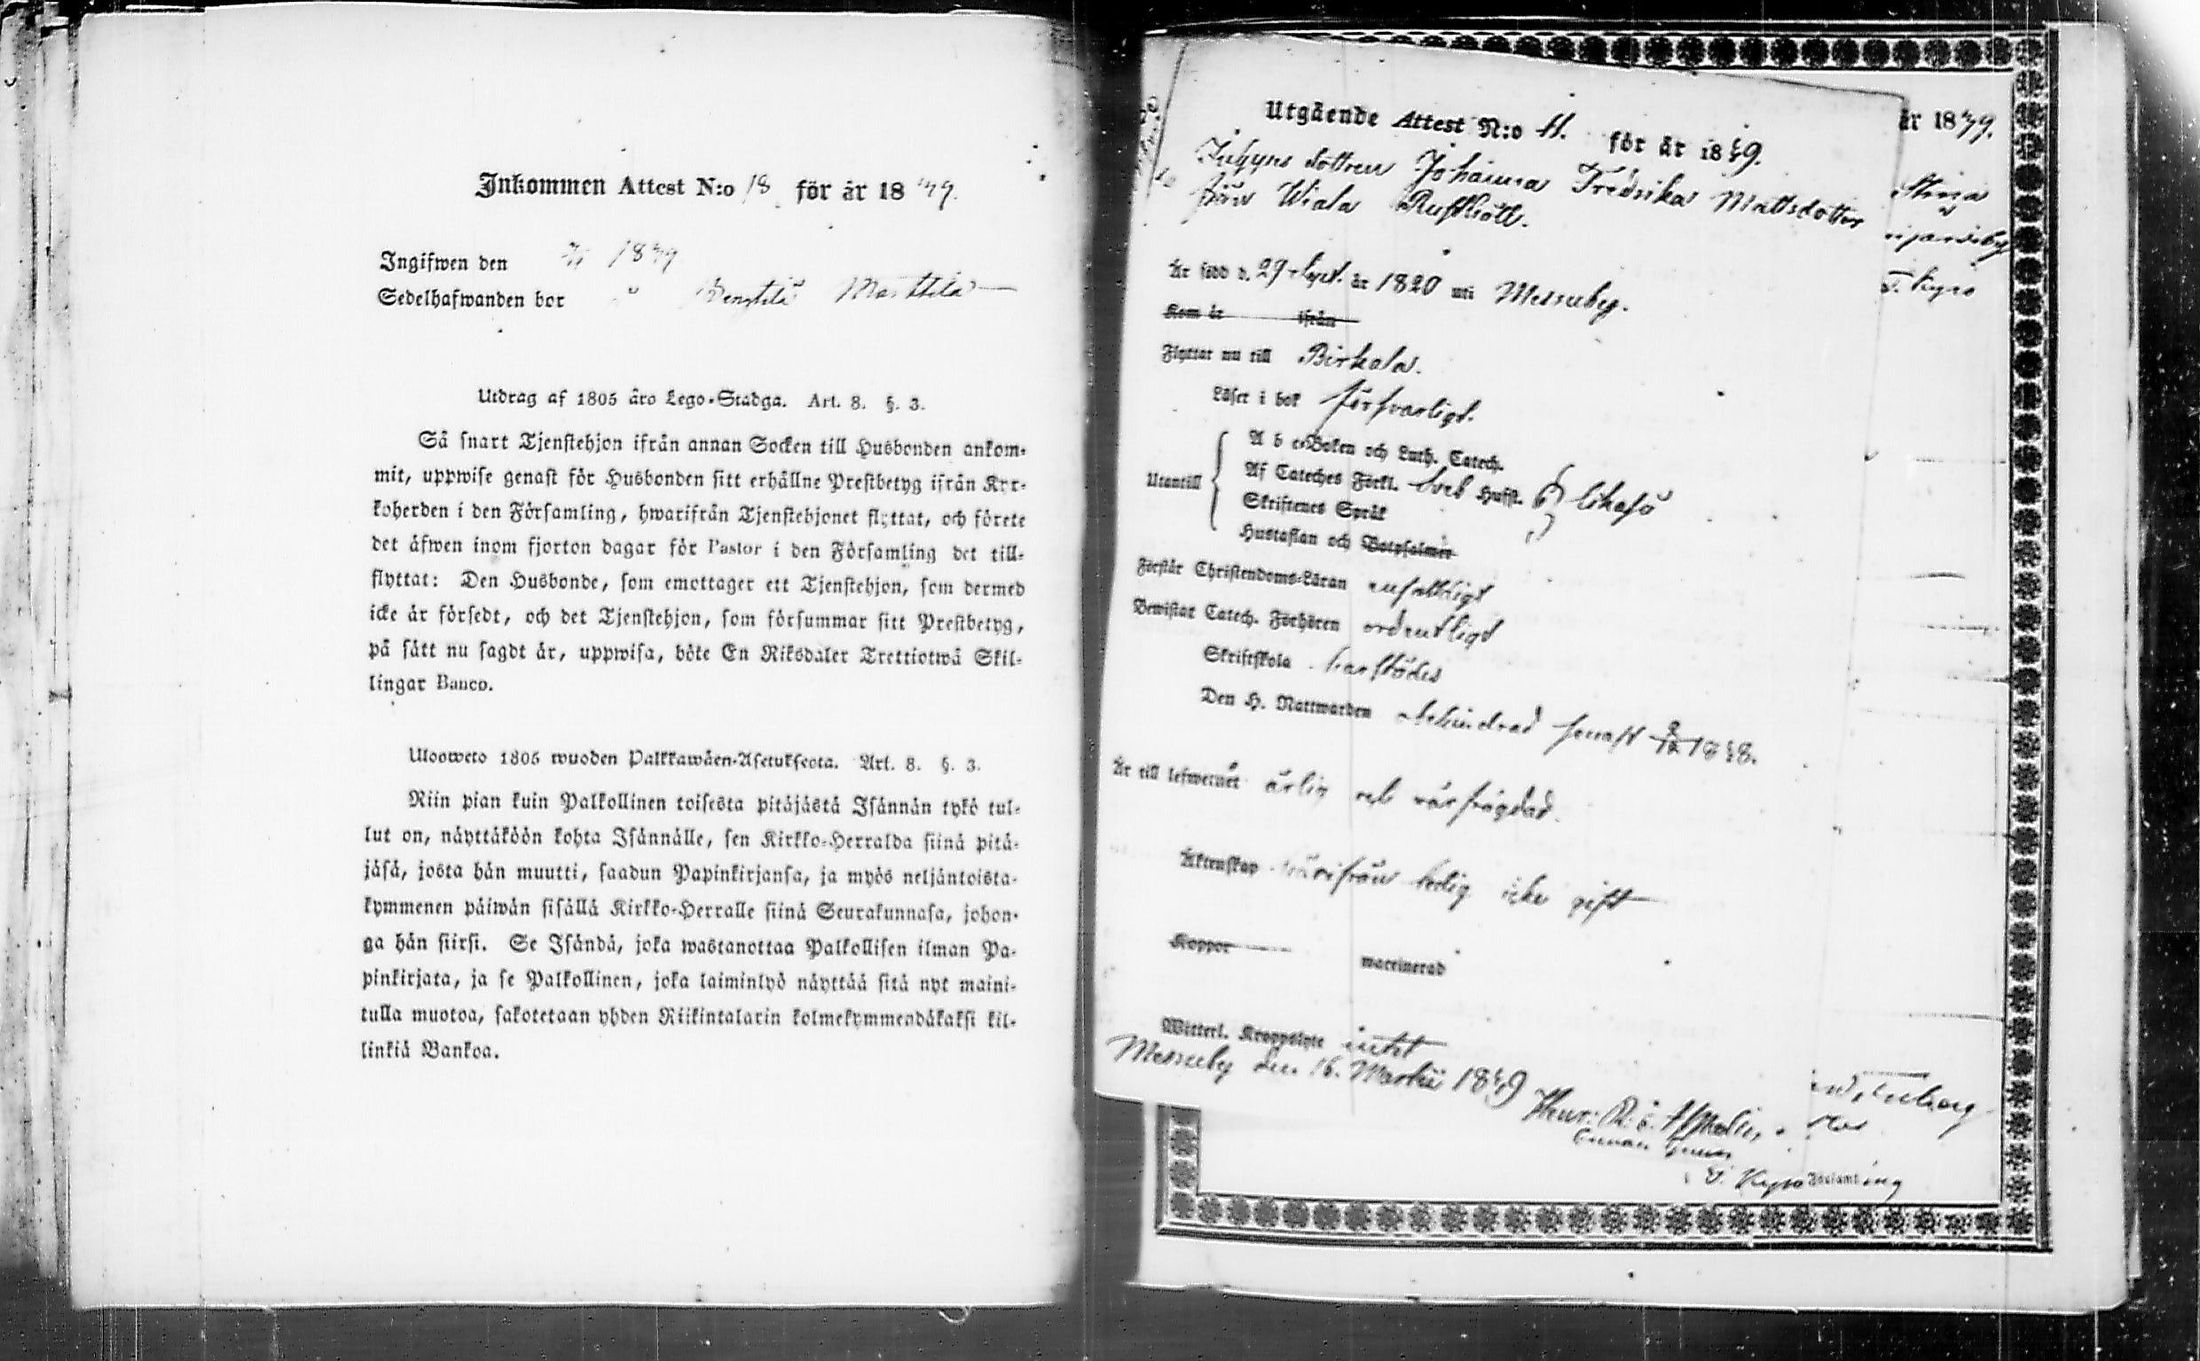 Inkommen Attest N:o 18 för år 1849.
Ingifwen den 1849
Sedelhafwanden bor Marttila
Utdrag af 1805 års Lego-Stadga. Art. 8. §. 3.
Så snart Tjenstehjon ifrån annan Socken till Husbonden ankom-
mit, uppwise genast för Husbonden sitt erhållne Prestbetyg ifrån Kyr-
koherden i den Församling, hwarifrån Tjenstehjonet flyttat, och förete
det äfwen inom fjorton dagar för Pastor i den Församling det till-
flyttat: Den Husbonde, som emottager ett Tjenstehjon, som dermed
icke är försedt, och det Tjenstehjon, som försummar sitt Prestbetyg,
på sätt nu sagdt är, uppwisa, böte En Riksdaler Trettiotwå Skil-
lingar Banco.
Uloosweto 1805 wuoden Palkkawäen-Asetuksesta. Art. 8. §. 3.
Niin pian kuin Palkollinen toisesta pitäjästä Isännän tykö tul-
lut on, näyttäköön kohta Isännälle, sen Kirkko-Herralda siinä pitä-
jäsä, josta hän muutti, saadun Papinkirjansa, ja myös neljäntoista-
kymmenen päiwän sisällä Kirkko-Herralle siinä Seurakunnasa, johon-
ga hän siirsi. Se Isändä, joka wastanottaa Palkollisen ilman Pa-
pinkirjata, ja se Palkollinen, joka laiminlyö näyttää sitä nyt maini-
tulla muotoa, sakotetaan yhden Riikintalarin kolmekymmendäkaksi kil-
linkiä Bankoa.
Utgående Attest N:o 11. för år 1849.
Inhyses dottren Johanna Fredrika Mattsdotter
från Wiala Rusthåll.
Är född d. 29 Sept. år 1820 uti Messuby.
Kom år ifrån
Flyttar nu till Birkala.
Läser i bok försvarligt.
Utantill
A b c-Boken och Luth. Catech.
Af Cateches Förkl. Sveb Hufst. 6 likaså
Skriftenes Språk
Hustaflan och Botpsalmer
Förstår Christendoms-Läran enfaldigt
Bewistar Catech. Förhören ordentligt
Skriftskola
Den H. Nattwarden obehindrad senast 2/12 1848.
Är till lefwernet ärlig och välfrägdad.
Äktenskap härifrån ledig icke gift
Koppor waccinerad
Witterl. Kroppslyte intet
Messuby den 16. Martii 1849
T. Kyro Församling
år 1849.
T. Kyro